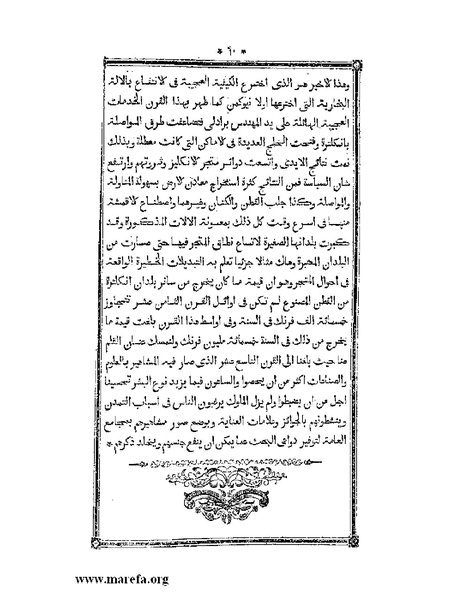 * ٦٠ *
وهذا لاخير هو الذى اخترع الكيفية العجيبة فى لانتفاع بالالة
البخارية التى اخترعها اولا نيوكمن كما ظهر بهذا القرن الخدمات
العجيبة الهائلة على يد المهندس برادلى فتضاعفت طرق المواصلة
بانكلترة وفتحت الخلجان العديدة فى لاماكن التى كانت معطلة وبذلك
نمت نتائج الايدى واتسعت دوائر متجر لانكليز وثروتهم وارتفع
شان السياسة فمن النتائج كثرة استخراج معادن لارض بسهولة المناولة
والمواصلة وكذا جلب القطن والكتان وغيرهما واصطناع لاقمشة
منهما فى اسرع وقت كل ذلك بمعونة الالات المذكورة وقد
كبرت بلدانها الصغيرة لاتساع نطاق المتجر فيها حتى صارت من
البلدان المعتبرة وهاك مثالا جزئيا تعلم به التبديلات الخطيرة الواقعة
فى احوال المتجر وهو ان قيمة ما كان يخرج من سائر بلدان انكلترة
من القطن المصنوع لم تكن فى اوائل القرن الثامن عشر تتجاوز
خمسمائة الف فرنك فى السنة وفى اواسط هذا القرن بلغت قيمة ما
يخرج من ذلك فى السنة خمسمائة مليون فرنك ولنمسك عنان القلم
هنا حيث بلغنا الى القرن التاسع عشر الذى صار فيه المشاهير بالعلوم
والصناعات اكثر من ان يحصوا والساعون فيما يزيد نوع البشر تحسينا
اجل من ان يضبطوا ولم يزل الملوك يرغبون الناس فى اسباب التمدن
وينشطونهم بالجوائز وعلامات العناية وبوضع صور مشاهيرهم بمجامع
العامة لتوفير دواعى البحث عما يمكن ان ينفع جنسهم ويخلد ذكرهم *
www.marefa.org